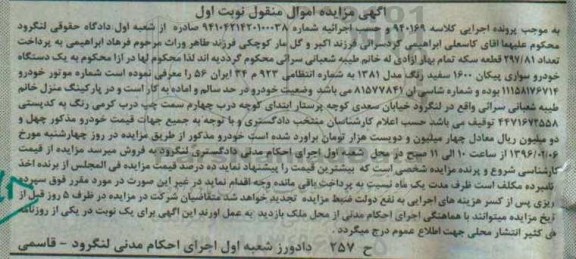 آگهی مزایده اموال منقول نوبت اول
به موجب پرونده اجرایی کلاسه ۹۴۰۱۶۹ و حسب اجرائیه شماره ۹۴۱۰۴۲۱۴۲۰۱۰۰۰۳۸ صادره از شعبه اول دادگاه حقوقی لنگرود
محکوم علیهما آقای کاسعلی ابراهیمی گردسرائی فرزند اکبر و گل مار کوچکی فرزند طاهر وراث مرحوم فرهاد ابراهیمی به پرداخت
تعداد ۲۹۷/۸۱ قطعه سکه تمام بهار آزادی له خانم طیبه شعبانی سرائی محکوم گردیده اند لذا محکوم لها در ازا محکوم به یک دستگاه
خودرو سواری پیکان ۱۶۰۰ سفید رنگ مدل ۱۳۸۱ به شماره انتظامی ۹۲۳ م ۳۴ ایران ۵۶ را معرفی نموده است شماره موتور خودرو
۱۱۱۵۸۱۷۶۷۱۴ بوده و شماره شاسی ان ۸۱۵۷۷۸۴۱ می باشد وضعیت خودرو در حد سالم و اماده به کار است و در پارکینگ منزل خانم
طیبه شعبانی سرائی واقع در لنگرود خیابان سعدی کوچه پرستار ابتدای کوچه درب چهارم سمت چپ درب کرمی رنگ به کدپستی
۴۴۷۱۶۷۳۵۵۸ توقیف می باشد حسب اعلام کارشناسان منتخب دادگستری و با توجه به جمیع جهات قیمت خودرو مذکور چهل و
دو میلیون ریال معادل چهار میلیون و دویست هزار تومان براورد شده است خودرو مذکور از طریق مزایده در روز چهارشنبه مورخ
۱۳۹۶/۰۲/۰۶ از ساعت ۱۰ الی ۱۱ صبح در محل شعبه اول اجرای احکام مدنی دادگستری لنگرود به فروش میرسد مزایده از قیمت
کارشناسی شروع و برنده مزایده شخصی است که بیشترین قیمت را پیشنهاد نماید ده درصد قیمت مزایده فی المجلس از برنده اخذ
نامبرده مکلف است ظرف مدت یک ماه نسبت به پرداخت باقی مانده وجه اقدام نماید در غیر این صورت در مورد مقرر فوق سپرده
ریزی پس از کسر هزینه های اجرایی به نفع دولت ضبط مزایده تجدید خواهد شد متقاضیان شرکت در مزایده در ظرف ۵ روز قبل از
تیخ مزایده میتوانند با هماهنگی اجرای احکام مدنی از محل ملک بازدید به عمل اورند این آگهی برای یک نوبت در یکی از روزنامه
ی کثیر انتشار محلی جهت اطلاع عموم درج میگردد
ح ۲۵۷ دادورز شعبه اول اجرای احکام مدنی لنگرود - قاسمی